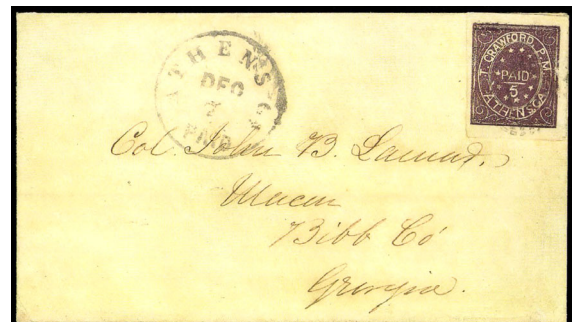 ATHENS GA.
DEC
7
PAID
T. CRAWFORD, P.M.
PAID
5
ATHENS GA
Col. John B. Lamar,
Macon
Bibb Co
Georgia.